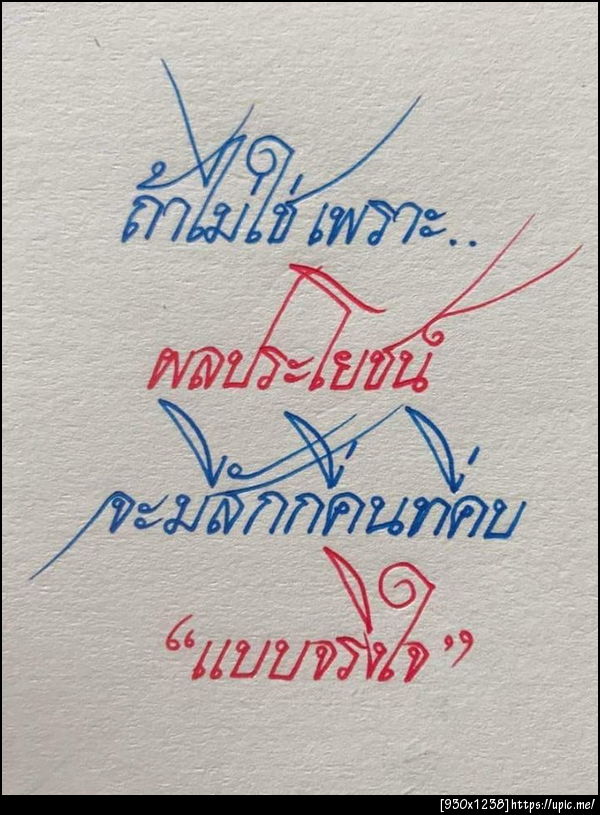 ถ้าไม่ใช่ เพราะ..
ผลประโยชน์
จะมีสักกี่คนที่คบ
“แบบจริงใจ”
[930x1238]https://upic.me/